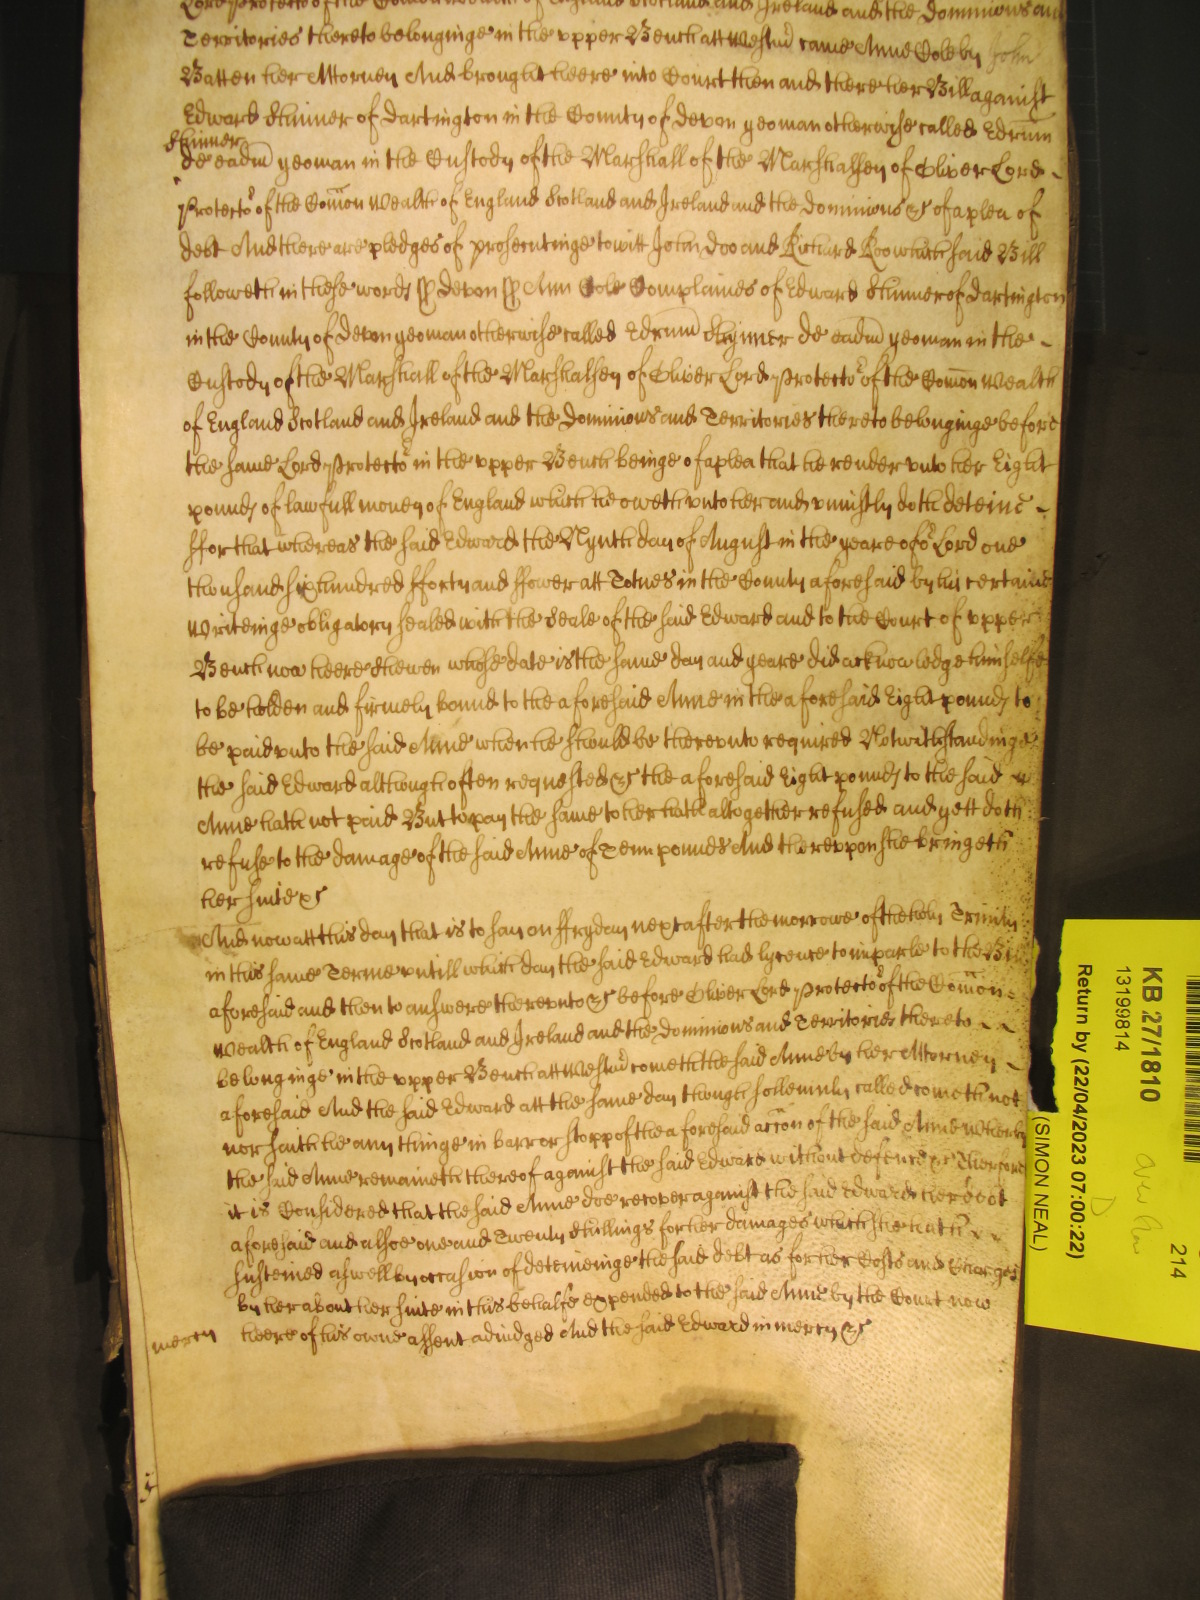 Lord Protector of the Common wealth of England Scotland and Ireland and the Dominions and
Territories thereto belonginge in the vpper Bench att Westmr came Anne Cole by John
Batten her Attorney And brought heere into Court then and there her Bill against
Edward Skinner of Dartington in the County of Devon yeoman otherwise called Edrum
Skinner
de eadm yeoman in the Custody of the Marshall of the Marshalsey of Oliver Lord
Protector of the Comon Wealth of England Scotland and Ireland and the Dominions &c of a plea of
debt And there are pledges of prosecutinge to witt John Doo and Richard Roo which said Bill
followeth in these words ss Devon ss Ann Cole Complaines of Edward Skinner of Dartington
in the County of Devon yeoman otherwise called Edrum Skynner de eadm yeoman in the
Custody of the Marshall of the Marshalsey of Oliver Lord Protector of the Comon Wealth
of England Scotland and Ireland and the Dominions and Territories thereto belonginge before
the same Lord Protector in the vpper Bench beinge of a plea that he render vnto her Eight
pounds of lawfull money of England which he oweth vnto her and vniustly doth deteine
ffor that whereas the said Edward the Nynth day of August in the yeare of or Lord one
thousand six hundred fforty and ffower att Totnes in the County aforesaid by his certaine
writeinge obligatory sealed with the Seale of the said Edward and to the Court of vpper
Bench now heere shewen whose date is the same day and yeare did acknowledge himselfe
to be holden and firmely bound to the aforesaid Anne in the aforesaid Eight pounds to
be paid vnto the said Anne when he should be therevnto required Notwithstandinge
the said Edward although often requested &c the aforesaid Eight pounds to the said
Anne hath not paid But to pay the same to her hath altogether refused and yett doth
refuse to the damage of the said Anne of Tenn pounds And therevpon she bringeth
her suite &c
And now att this day that is to say on ffryday next after the morrowe of the holy Trinity
in this same Terme vntill which day the said Edward had lycence to imparle to the Bill
aforesaid and then to answere therevnto &c before Oliver Lord Protector of the Comon
wealth of England Scotland and Ireland and the Dominions and Territories thereto
belonginge in the vpper Bench att Westmr cometh the said Anne by her Attorney
aforesaid And the said Edward att the same day though sollemnly called cometh not
nor saith he any thinge in barr or stopp of the aforesaid accon of the said Anne whereby
the said Anne remaineth thereof against the said Edward without defence &c Therefore
it is Considered that the said Anne doe recover against the said Edward her debt
aforesaid and alsoe one and Twenty shillings for her damages which she hath
susteined aswell by occasion of deteineinge the said debt as for her Costs and Charges
by her about her suite in this behalfe expended to the said Anne by the Court now
mercy heere of his owne assent adiudged And the said Edward in mercy &c
KB 27/1810
13199814
Return by (22/04/2023 07:00:22)
(SIMON NEAL)
214